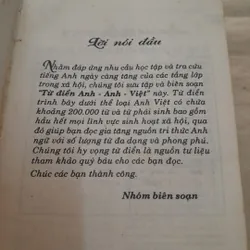 Lời nói đầu
Nhằm đáp ứng nhu cầu học tập và tra cứu
tiếng Anh ngày càng tăng của các tầng lớp
trong xã hội, chúng tôi sưu tập và biên soạn
"Từ điển Anh - Anh - Việt" này. Từ điển
trình bày dưới thể loại Anh Việt có chứa
khoảng 200.000 từ và từ phái sinh bao gồm
hầu hết mọi lĩnh vực sinh hoạt xã hội, qua
đó giúp bạn đọc gia tăng nguồn tri thức Anh
ngữ với số lượng từ đa dạng và phong phú.
Chúng tôi hy vọng từ điển là nguồn tư liệu
tham khảo quý báu cho các bạn đọc.
Chúc các bạn thành công.
Nhóm biên soạn